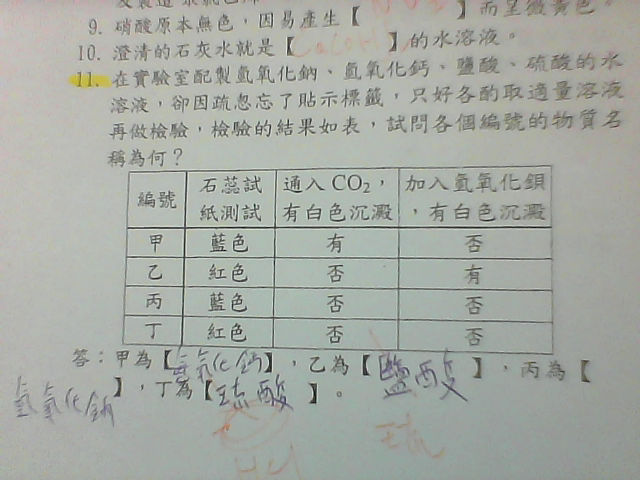 9. 硝酸原本無色，因易產生【NO₂】而呈微黃色。
10. 澄清的石灰水就是【Ca(OH)₂】的水溶液。
11. 在實驗室配製氫氧化鈉、氫氧化鈣、鹽酸、硫酸的水
溶液，卻因疏忽忘了貼示標籤，只好各酌取適量溶液
再做檢驗，檢驗的結果如表，試問各個編號的物質名
稱為何？
編號 石蕊試紙測試 通入 CO₂，有白色沉澱 加入氫氧化鋇，有白色沉澱
甲 藍色 有 否
乙 紅色 否 有
丙 藍色 否 否
丁 紅色 否 否
答：甲為【氫氧化鈣】，乙為【鹽酸】，丙為【
氫氧化鈉】，丁為【硫酸】。
HCl
硫